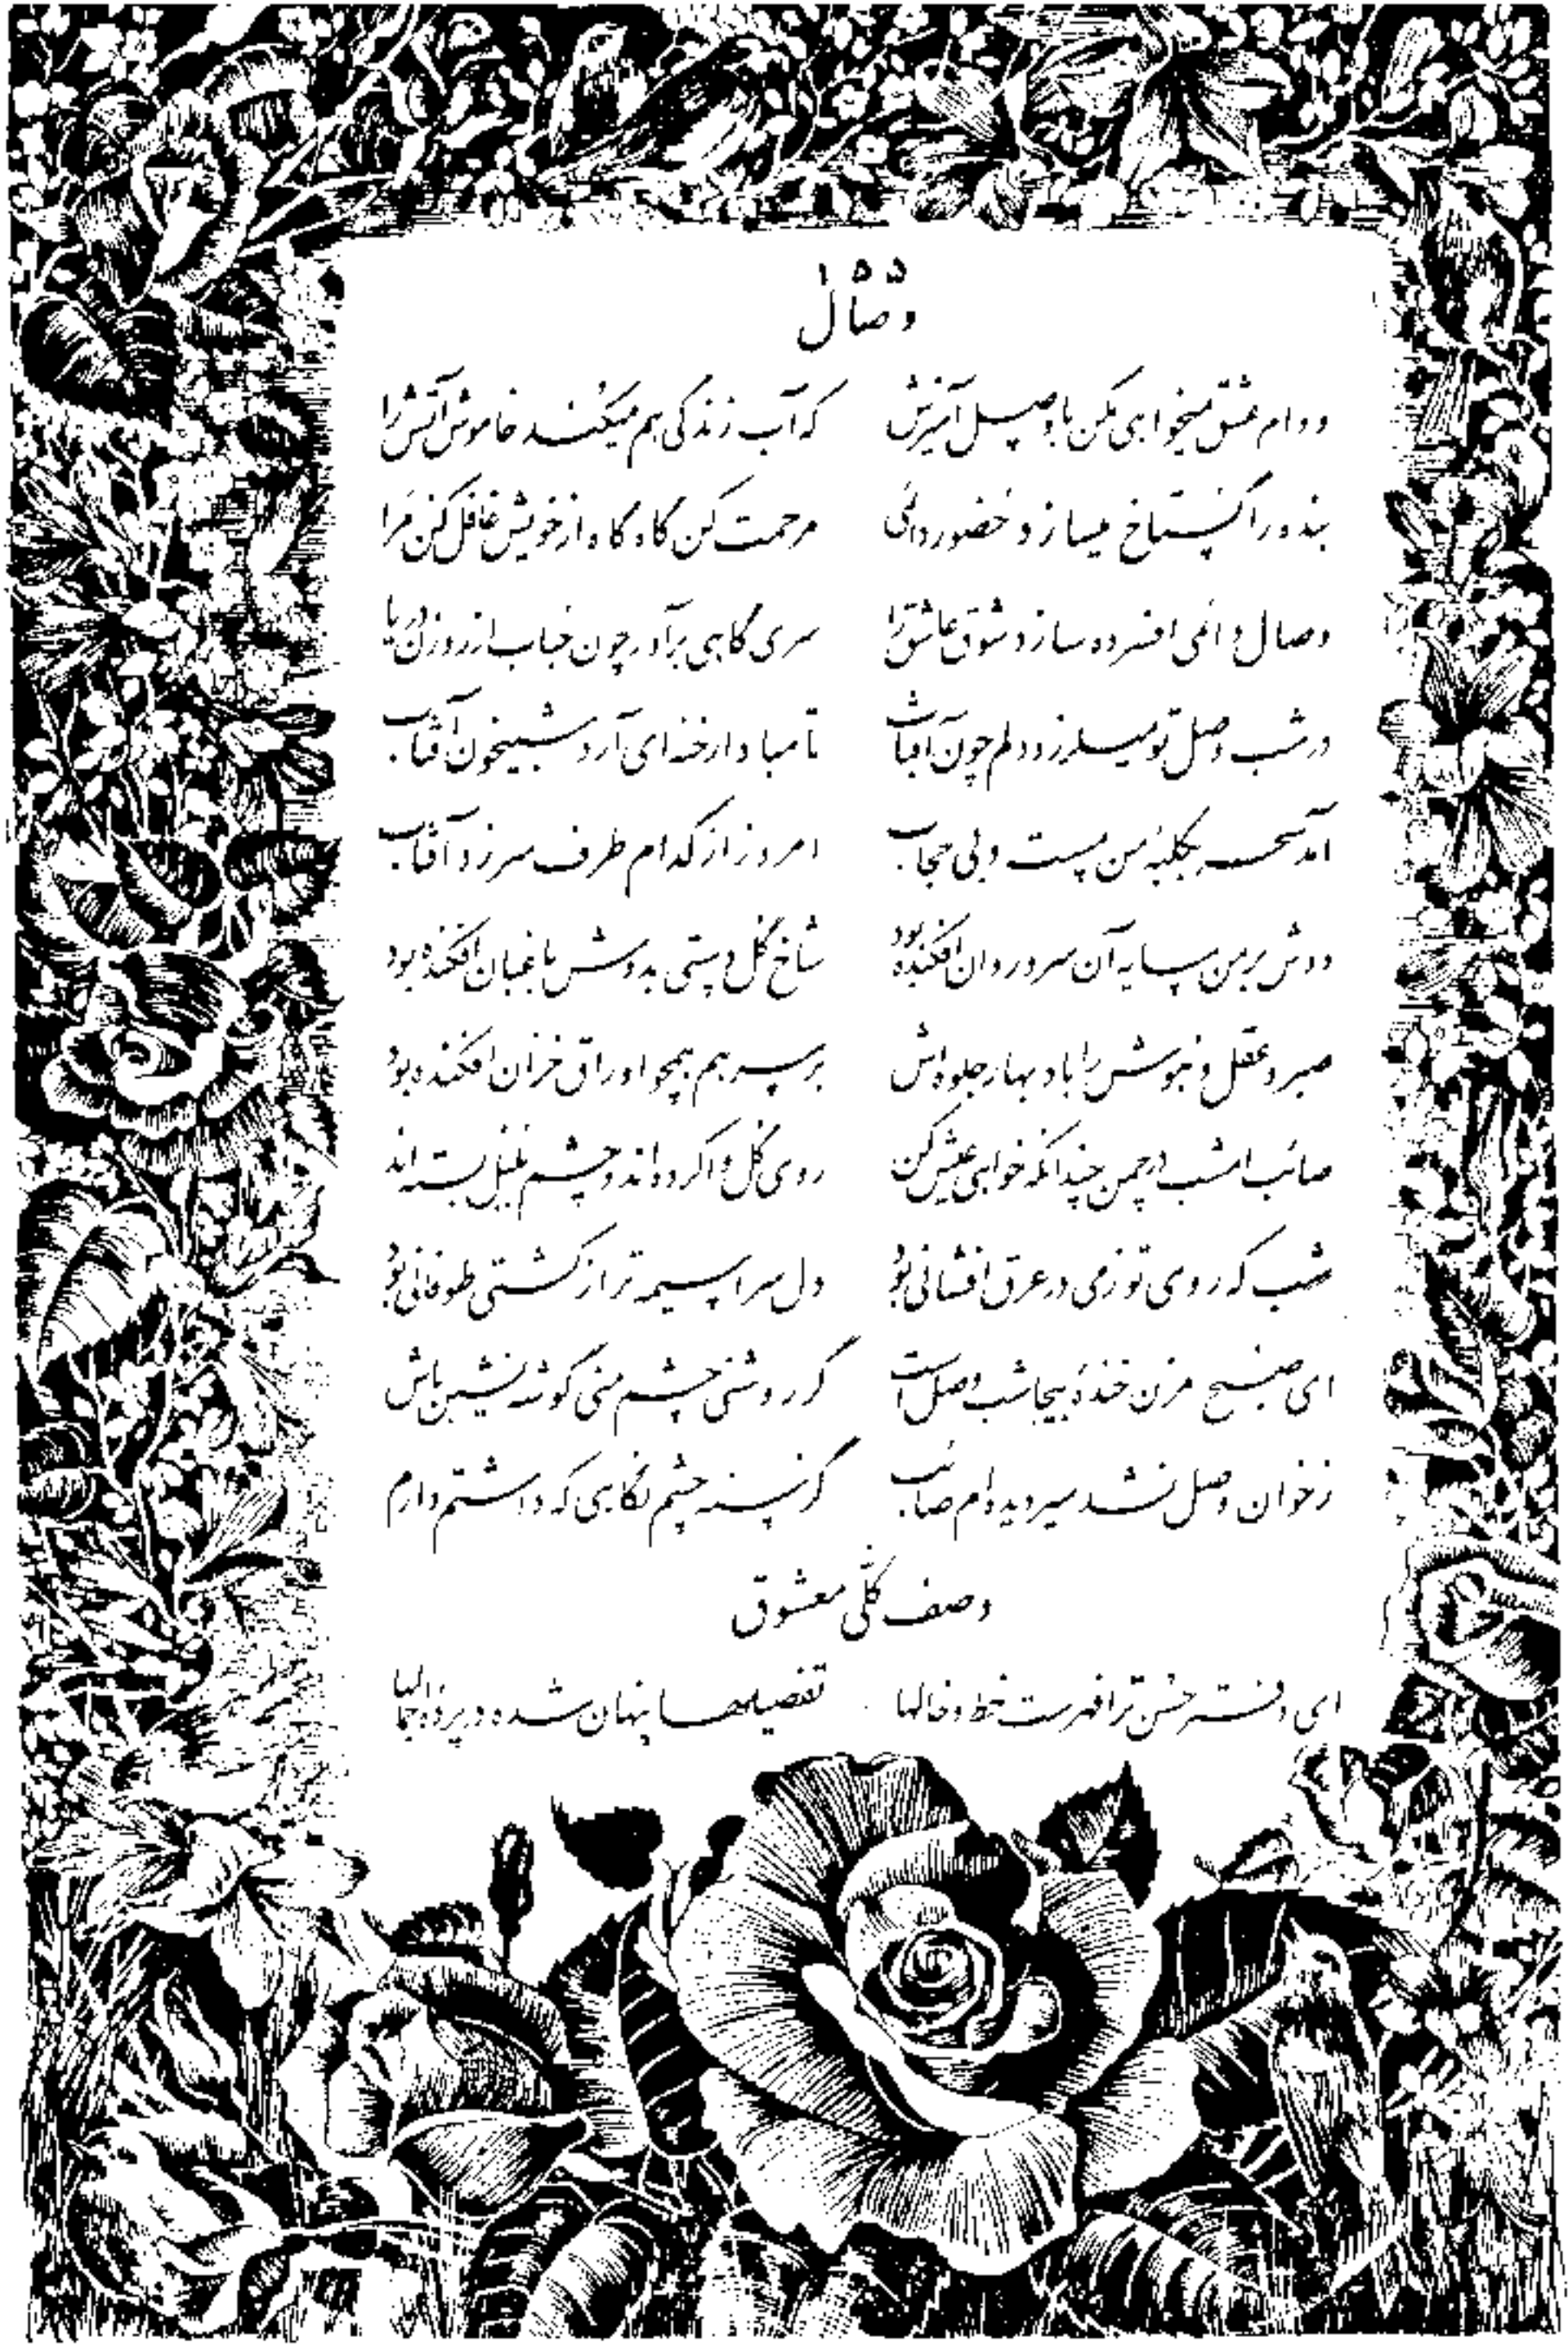 ۱۵۵
وصال
دوام عشق میخواهی مکن با وصل آمیزش که آب زندگی هم میکند خاموش آتش را
بنده را گستاخ میسازد حضور دائمی مرحمت کن گاه گاه از خویش غافل کن مرا
وصال دائمی افسرده سازد شوق عاشق را سری گاهی برآور چون حباب از روزن دریا
در شب وصل تو میلرزد دلم چون آفتاب تا مبادا رخنه ای آرد شبیخون آفتاب
آمد سحر بکلبهٔ من مست و بی حجاب امروز از کدام طرف سر زد آفتاب
دوش بر من سایه آن سرو روان افکنده بود شاخ گل دستی بدوش باغبان افکنده بود
صبر و عقل و هوش را باد بهار جلوه اش بر سر هم همچو اوراق خزان افکنده بود
صائب امشب در چمن چندانکه خواهی عیش کن روی گل وا کرده اند و چشم بلبل بسته اند
شب که روی تو ز می در عرق افشانی بود دل سراسیمه تر از کشتی طوفانی بود
ای صبح مزن خندهٔ بیجا شب وصل است گر روشنی چشم منی گوشه نشین باش
ز خوان وصل نشد سیر دیده ام صائب گرسنه چشم نگاهی که داشتم دارم
وصف کلّی معشوق
ای دفتر حسن ترا فهرست خط و خالها تفصیلها پنهان شده در پردهٔ اجمالها